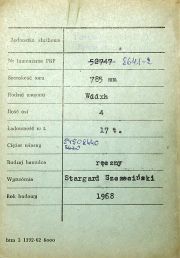 Jednostka służbowa
Nr inwentarzowy PKP 50747 8641-2
Szerokość toru 785 mm
Rodzaj wagonu Wddxh
Ilość osi 4
Ładowność w t. 17 t.
Ciężar własny
Rodzaj hamulca ręczny
Wytwórnia Stargard Szczeciński
Rok budowy 1968